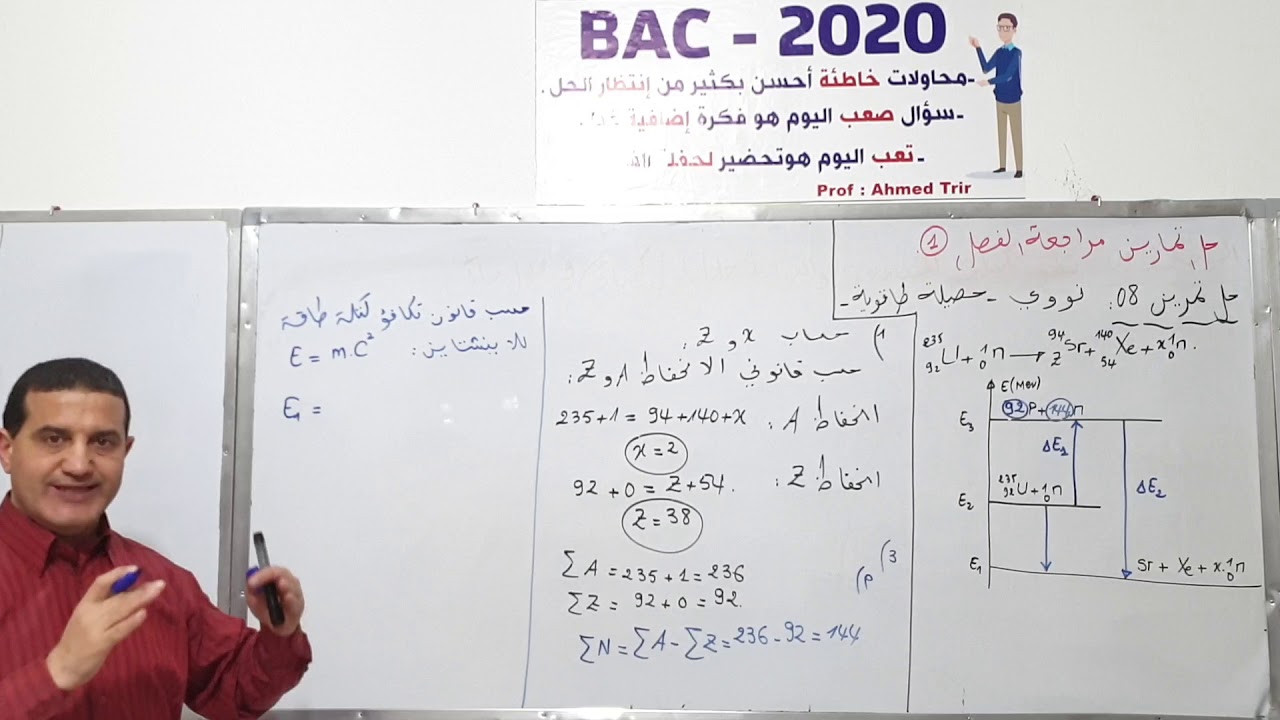 BAC - 2020
-محاولات خاطئة أحسن بكثير من إنتظار الحل.
-سؤال صعب اليوم هو فكرة إضافية
- تعب اليوم هوتحضير
Prof : Ahmed Trir
حل تمارين مراجعة الفصل 1
حل تمرين 08: نووي - حصيلة طاقوية -
²³⁵₉₂U + ¹₀n → ⁹⁴_Z Sr + ¹⁴⁰₅₄Xe + x¹₀n.
E(MeV)
E₃ 92P + 144n
ΔE₁
ΔE₂
E₂ ²³⁵₉₂U + ¹₀n
E₁ Sr + Xe + x.¹₀n
1) حساب x و Z:
حسب قانوني الانحفاظ A و Z:
انحفاظ A: 235+1 = 94+140+x
x = 2
انحفاظ Z: 92+0 = Z+54.
Z = 38
3)
ΣA = 235+1 = 236
ΣZ = 92+0 = 92.
ΣN = ΣA - ΣZ = 236 - 92 = 144
حسب قانون تكافؤ كتلة طاقة
لاينشتاين: E = m.C²
E₁ =